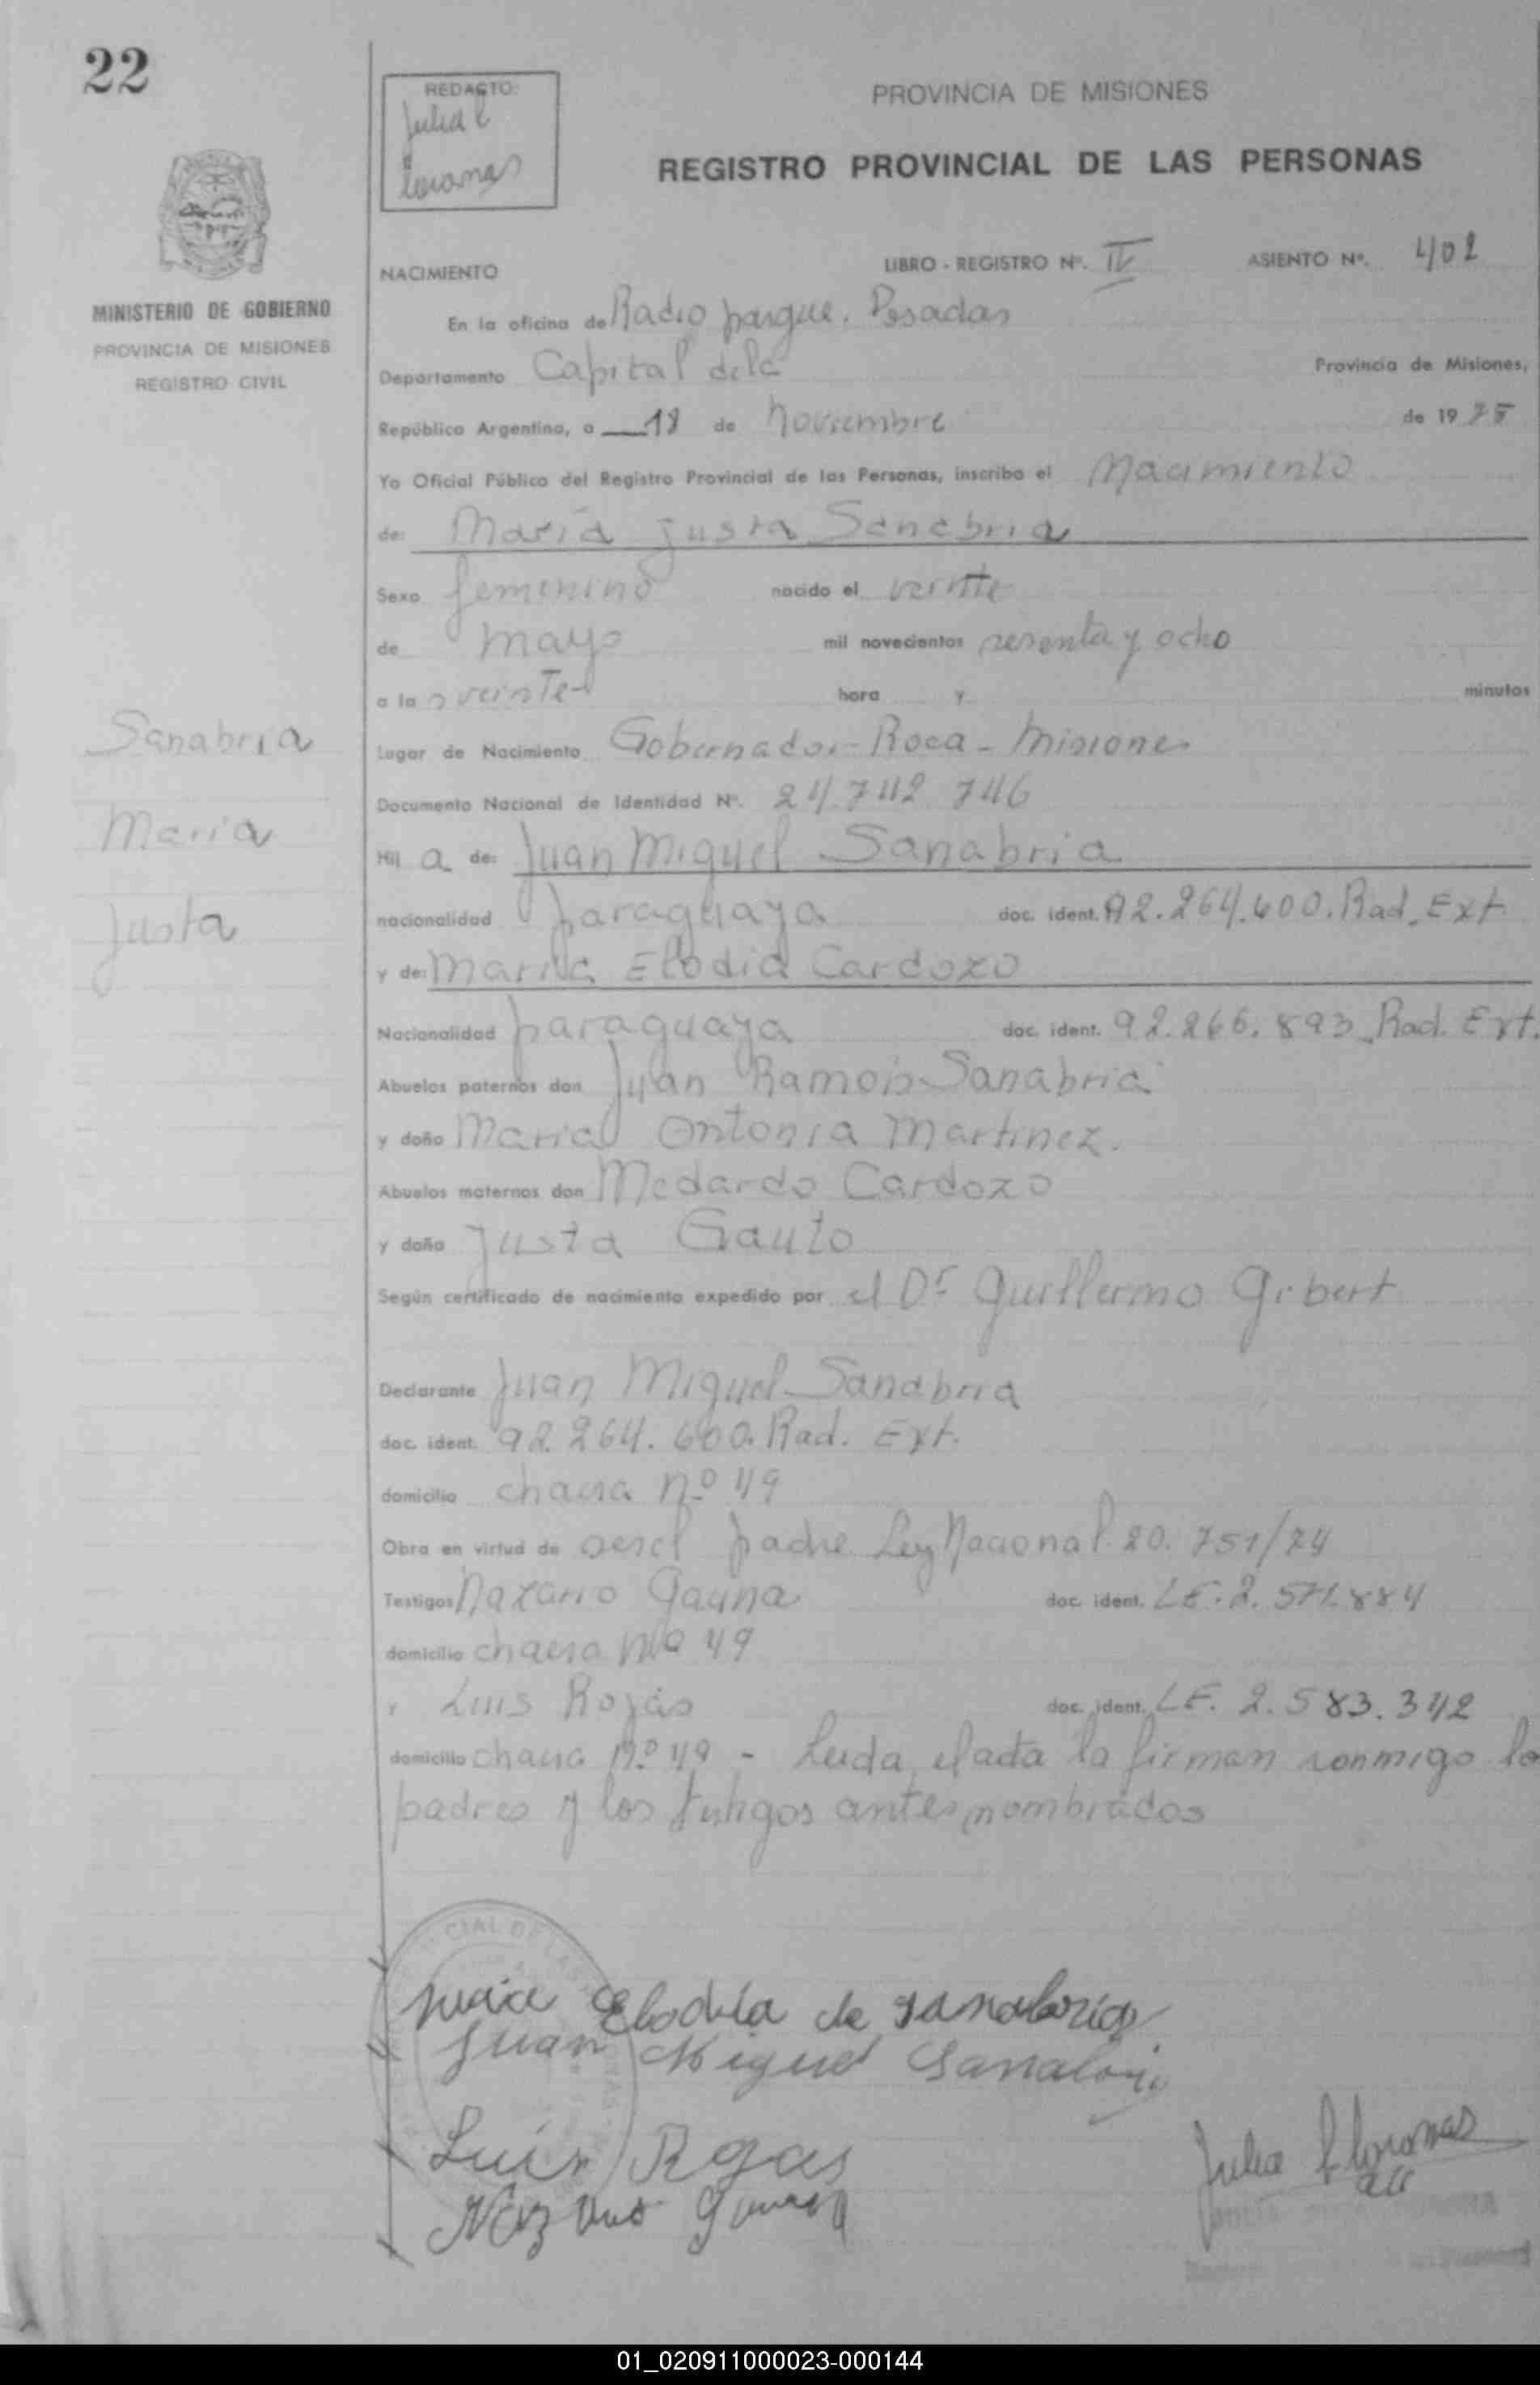 22
REDACTO:
Julia
PROVINCIA DE MISIONES
REGISTRO PROVINCIAL DE LAS PERSONAS
MINISTERIO DE GOBIERNO
PROVINCIA DE MISIONES
REGISTRO CIVIL
NACIMIENTO LIBRO - REGISTRO Nº. IV ASIENTO Nº. 402
En la oficina de Radio parque. Posadas
Departamento Capital de la Provincia de Misiones,
República Argentina, a 18 de Noviembre de 1975
Yo Oficial Público del Registro Provincial de las Personas, inscribo el Nacimiento
de: María Justa Sanabria
Sexo femenino nacido el veinte
de mayo mil novecientos sesenta y ocho
a las veinte hora y minutos
Lugar de Nacimiento Gobernador Roca - Misiones
Documento Nacional de Identidad Nº. 24.742.746
Sanabria
Maria
Justa
Hij a de: Juan Miguel Sanabria
nacionalidad paraguaya doc. ident. 92.264.600. Rad. Ext.
y de: Maria Elodia Cardozo
Nacionalidad paraguaya doc. ident. 92.266.893 Rad. Ext.
Abuelos paternos don Juan Ramon Sanabria
y doña Maria Antonia Martinez.
Abuelos maternos don Medardo Cardozo
y doña Justa Gauto
Según certificado de nacimiento expedido por el Dr Guillermo Gibert
Declarante Juan Miguel Sanabria
doc. ident. 92.264.600. Rad. Ext.
domicilio chacra Nº 49
Obra en virtud de ser el padre Ley Nacional 20.751/74
Testigos Nazario Gauna doc. ident. LE. 2.571.884
domicilio chacra Nº 49
y Luis Rojas doc. ident. LE. 2.583.342
domicilio chacra Nº 49 - Leida el acta la firman conmigo lo
padres y los testigos antes nombrados
CIAL DE LAS
Elodia de Sanabria
Juan Miguel Sanabria
Luis Rojas
Julia
01_020911000023-000144